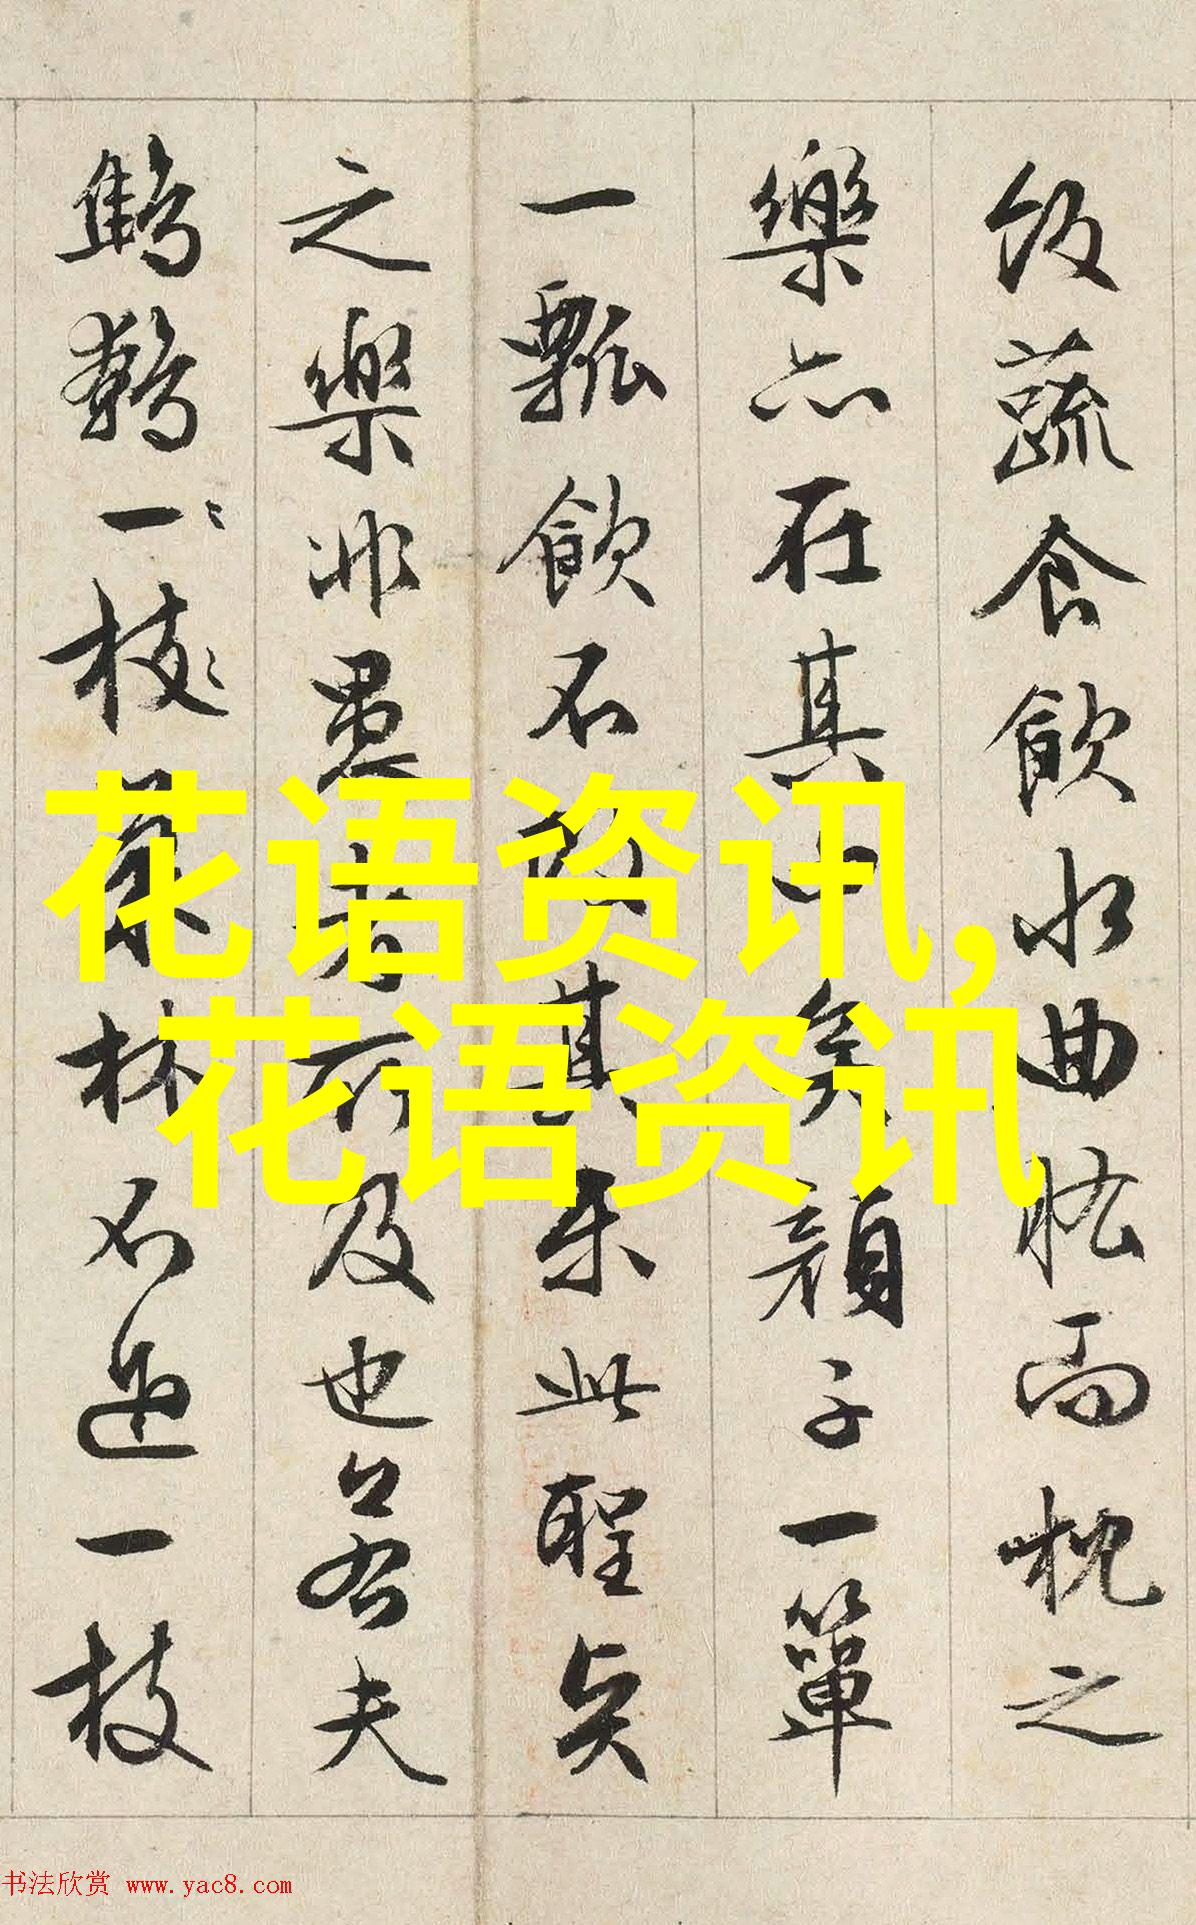 飯蔬食飲水曲肱而枕之
樂亦在其中矣顔子一簞
一瓢飲不改其樂此聖賢
之樂非愚者所及也若夫
鷦鷯一枝巢林不過一枝
花语资讯,
花语资讯
书法欣赏 www.yac8.com